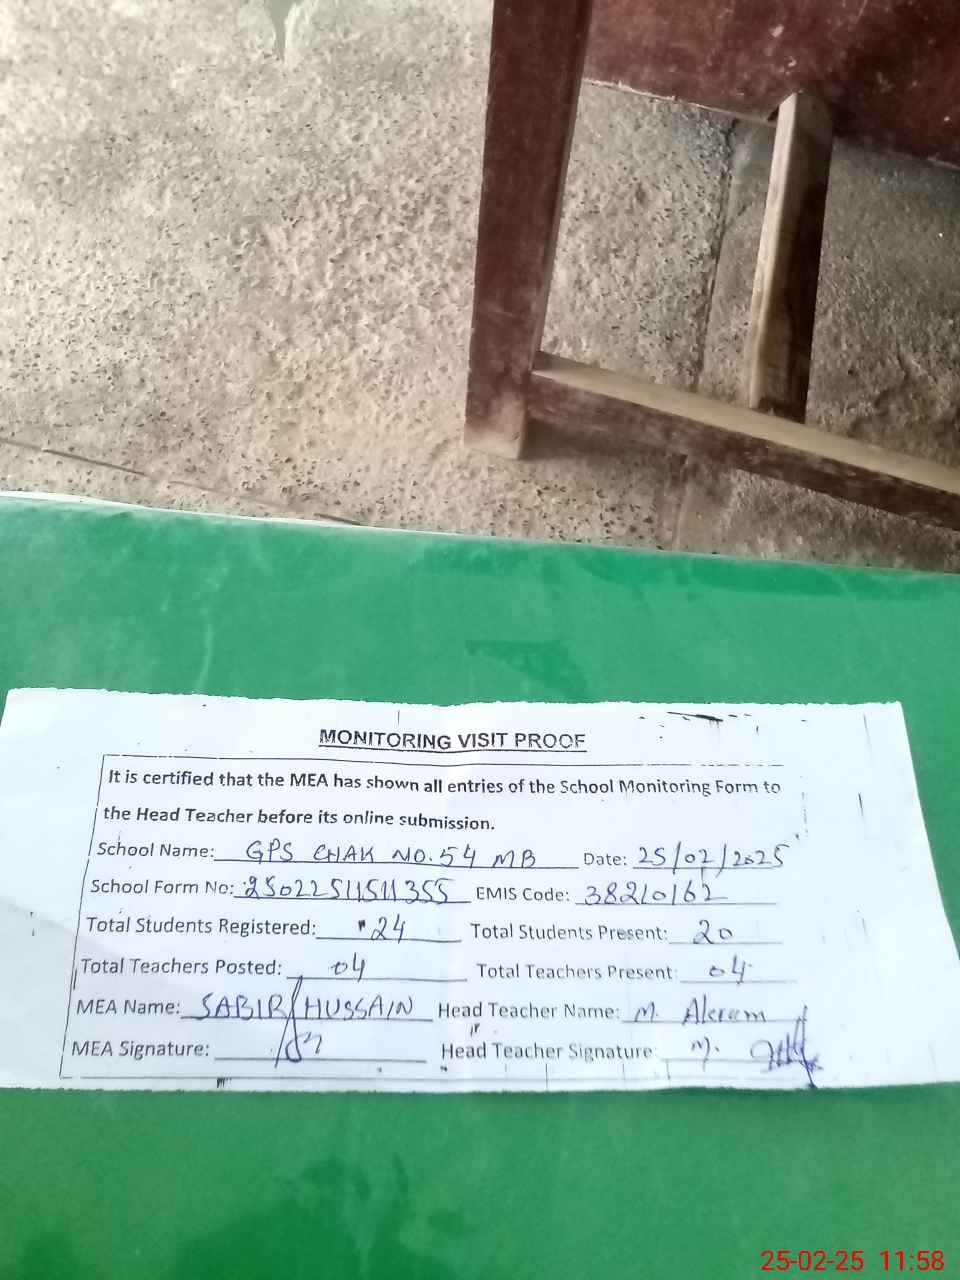 MONITORING VISIT PROOF
It is certified that the MEA has shown all entries of the School Monitoring Form to
the Head Teacher before its online submission.
School Name: GPS CHAK NO.54 MB Date: 25/02/2025
School Form No: 25022511511355 EMIS Code: 38210162
Total Students Registered: 24 Total Students Present: 20
Total Teachers Posted: 04 Total Teachers Present: 04
MEA Name: SABIR HUSSAIN Head Teacher Name: M. Akram
MEA Signature: Head Teacher Signature: M.
25-02-25 11:58